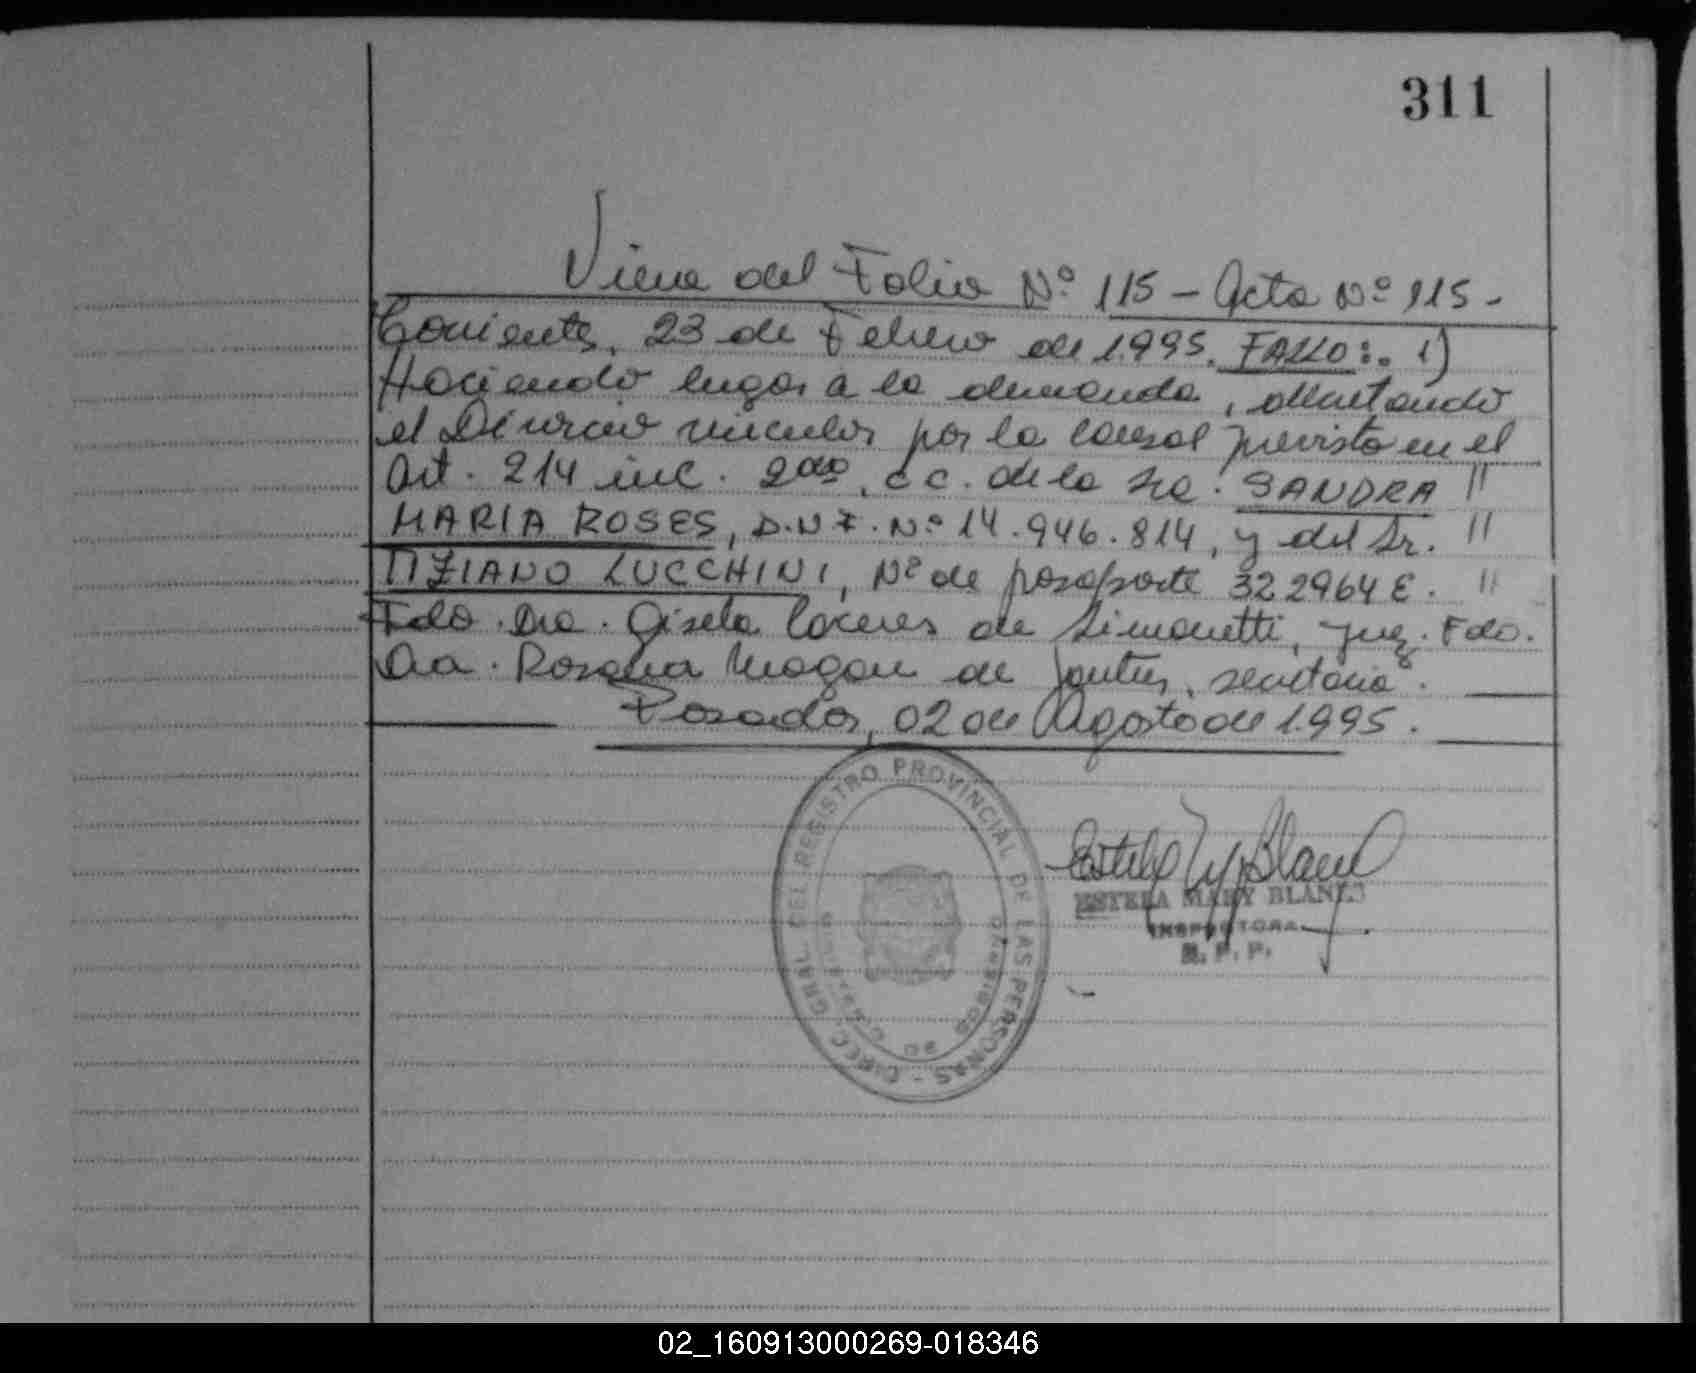 311
Viene del Folio Nº 115 - Acta Nº 115 -
Corrientes, 23 de Febrero de 1.995. FALLO:. 1)
Haciendo lugar a la demanda, decretando
el Divorcio vincular por la causal prevista en el
Art. 214 inc. 2do, C C. de la Sra. SANDRA "
MARIA ROSES, D.N.I. Nº 14.946.814, y del Sr. "
TIZIANO LUCCHINI, Nº de pasaporte 322964 E. "
Fdo. Dra. Gisela Caceres de Simonetti, Juez. Fdo.
Dra. Rosana Magan de , secretaria.
Posadas, 02 de Agosto de 1.995.
DIREC. GRAL. DEL REGISTRO PROVINCIAL DE LAS PERSONAS -
ESTELA MARY BLANES
INSPECTORA
R. P. P.
02_160913000269-018346